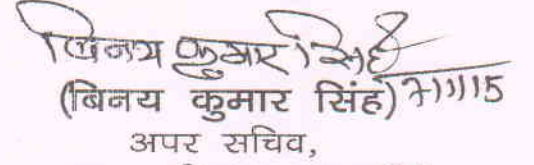 बिनय कुमार सिंह
(बिनय कुमार सिंह) 7/1/15
अपर सचिव,